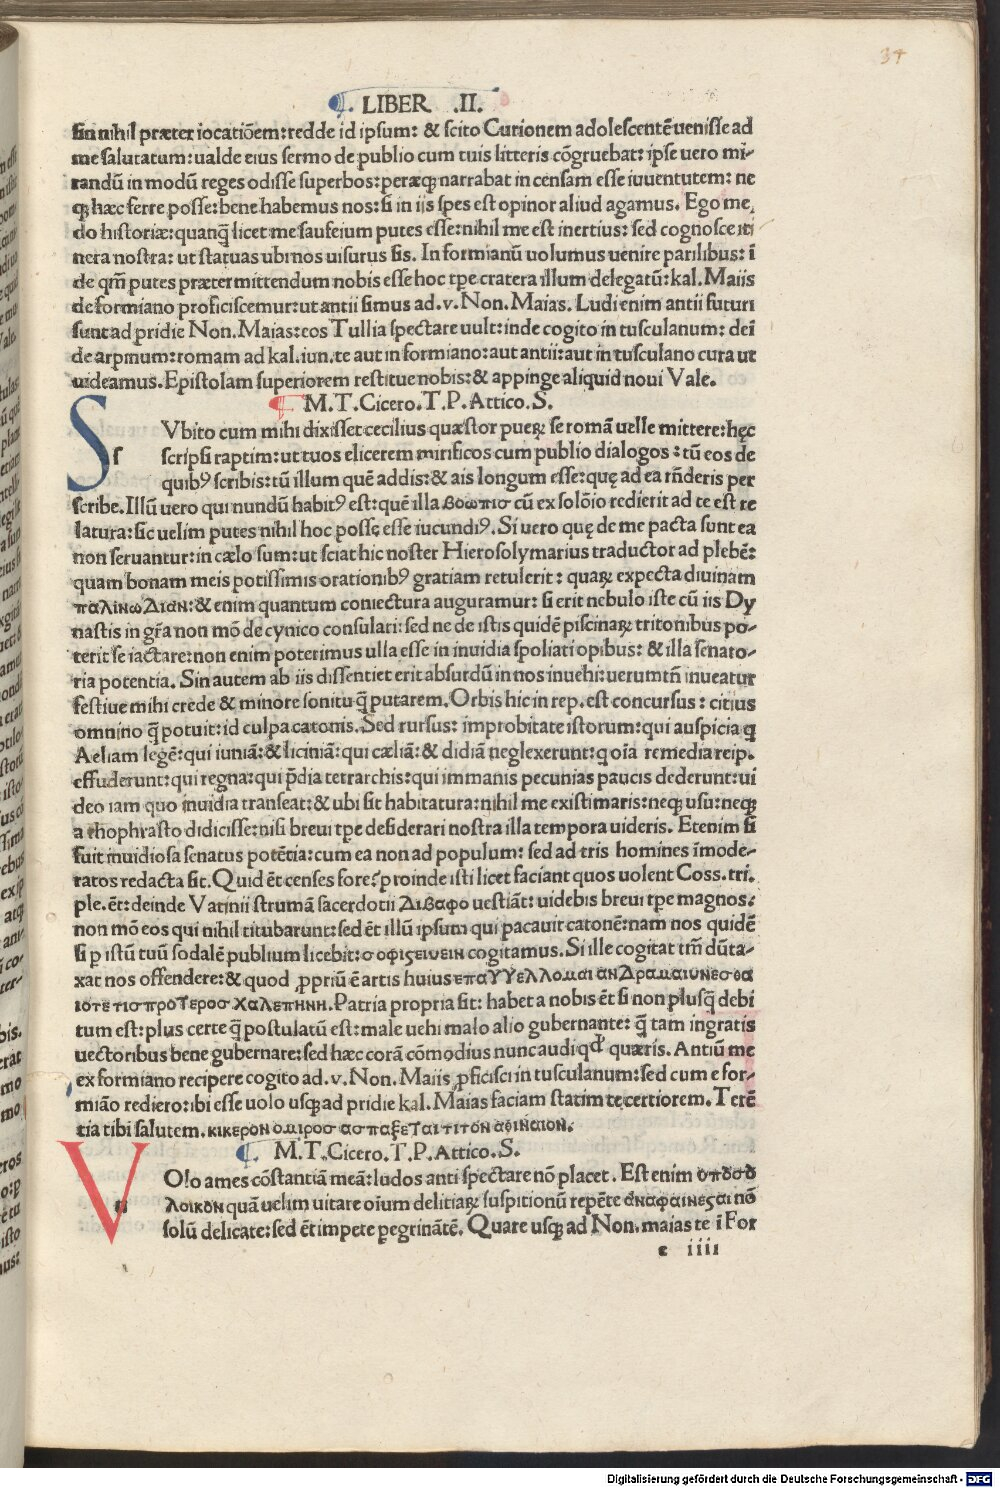 34
LIBER .II.
sin nihil præter iocatiōem: redde id ipsum: & scito Curionem adolescentē uenisse ad
me salutatum: ualde eius sermo de publio cum tuis litteris cōgruebat: ipse uero mi-
randū in modū reges odisse superbos: peræq; narrabat in censam esse iuuentutem: ne
q; hæc ferre posse: bene habemus nos: si in iis spes est opinor aliud agamus. Ego me
do historiæ: quanq̄ licet me saufeium putes esse: nihil me est inertius: sed cognosce iti
nera nostra: ut statuas ubi nos uisurus sis. In formianū uolumus uenire parilibus: ī
de qm̄ putes prætermittendum nobis esse hoc tpe cratera illum delegatū: kal. Maiis
de formiano proficiscemur: ut antii simus ad .v. Non. Maias. Ludi enim antii futuri
sunt ad pridie Non. Maias: eos Tullia spectare uult: inde cogito in tusculanum: dei
de arpinum: romam ad kal. iun. te aut in formiano: aut antii: aut in tusculano cura ut
uideamus. Epistolam superiorem restitue nobis: & appinge aliquid noui Vale.
M. T. Cicero. T. P. Attico. S.
S s Vbito cum mihi dixisset cecilius quæstor pueꝝ se romā uelle mittere: hęc
scripsi raptim: ut tuos elicerem mirificos cum publio dialogos: tū eos de
quibꝰ scribis: tū illum quē addis: & ais longum esse: quę ad ea rn̄deris per
scribe. Illū uero qui nundū habitꝰ est: quē illa βοωπισ cū ex solōio redierit ad te est re
latura: sic uelim putes nihil hoc posse esse iucundiꝰ. Si uero quę de me pacta sunt ea
non seruantur: in cælo sum: ut sciat hic noster Hierosolymarius traductor ad plebē:
quam bonam meis potissimis orationibꝰ gratiam retulerit: quaꝝ expecta diuinam
παλινωΔιαν: & enim quantum coniectura auguramur: si erit nebulo iste cū iis Dy
nastis in gr̄a non mō de cynico consulari: sed ne de istis quidē piscinaꝝ tritonibus po-
terit se iactare: non enim poterimus ulla esse in inuidia spoliati opibus: & illa senato-
ria potentia. Sin autem ab iis dissentiet erit absurdū in nos inuehi: uerumtn̄ inueatur
festiue mihi crede & minore sonitu q̄ putarem. Orbis hic in rep. est concursus: citius
omnino q̄ potuit: id culpa catonis. Sed rursus: improbitate istorum: qui auspicia q
Aeliam legē: qui iuniā: & liciniā: qui cæliā: & didiā neglexerunt: q oīa remedia reip.
effuderunt: qui regna: qui p̄dia tetrarchis: qui immanis pecunias paucis dederunt: ui
deo iam quo inuidia transeat: & ubi sit habitatura: nihil me existimaris: neq; usu: neq;
a thophrasto didicisse: nisi breui tpe desiderari nostra illa tempora uideris. Etenim si
fuit inuidiosa senatus potētia: cum ea non ad populum: sed ad tris homines īmode-
ratos redacta sit. Quid ēt censes fore? proinde isti licet faciant quos uolent Coss. tri.
ple. ēt: deinde Vatinii strumā sacerdotii Διβαφο uestiāt: uidebis breui tpe magnos:
non mō eos qui nihil titubarunt: sed ēt illū ipsum qui pacauit catonē: nam nos quidē
si p istū tuū sodalē publium licebit: σοφιςεινειν cogitamus. Si ille cogitat tm̄ dūta-
xat nos offendere: & quod ꝓpriū ē artis huius επαΥΥελλομαι ανΔραμαιυνεσθαι
ιοτε τισ προτεροσ χαλεπηνη. Patria propria sit: habet a nobis ēt si non plusq̄ debi
tum est: plus certe q̄ postulatū est: male uehi malo alio gubernante: q̄ tam ingratis
uectoribus bene gubernare: sed hæc corā cōmodius nunc audi qđ quæris. Antiū me
ex formiano recipere cogito ad .v. Non. Maiis ꝓficisci in tusculanum: sed cum e for-
miāo rediero: ibi esse uolo usq; ad pridie kal. Maias faciam statim te certiorem. Terē
tia tibi salutem. κικερον ο μιροσ ασπαξεταιτιτον αθιναιον.
M. T. Cicero. T. P. Attico. S.
V Olo ames cōstantiā meā: ludos anti spectare nō placet. Est enim
λοικον quā uelim uitare oium delitiaꝝ suspitionū repēte αναφαινεςαι nō
solū delicate: sed ēt impete pegrinātē. Quare usq; ad Non. maias te ī For
e iiii
Digitalisierung gefördert durch die Deutsche Forschungsgemeinschaft - DFG